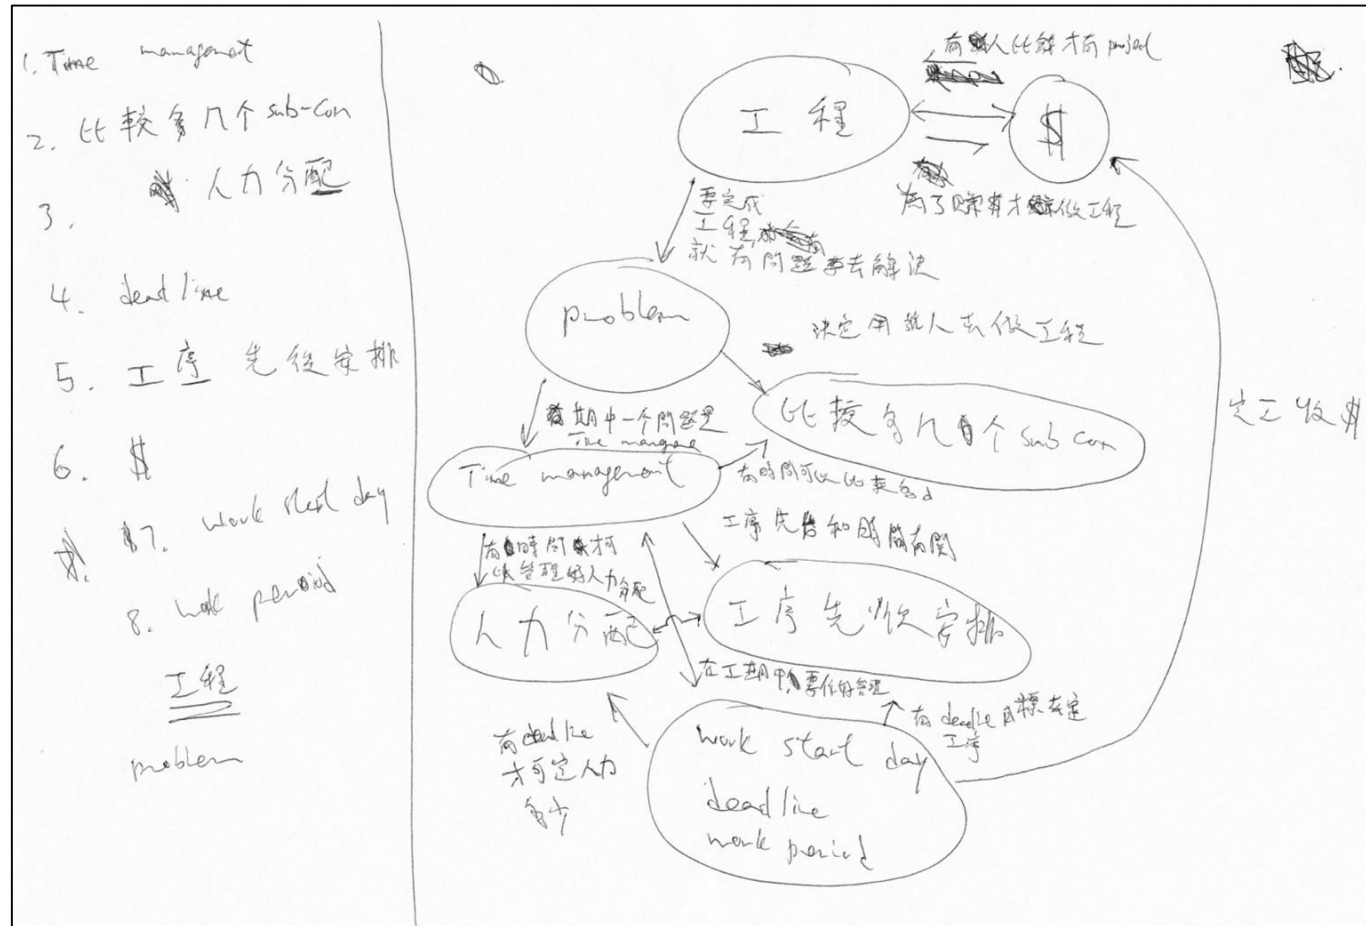 1. Time managemet
2. 比較多几个 sub-con
人力分配
3.
4. dead line
5. 工序 先後安排
6. $
7. work start day
8. work peroid
工程
problem
有人比錢才有 project
工程
$
為了賺錢才做工程
要完成
工程,
就有問題要去解決
problem
決定用几人去做工程
比較多几个 sub con
期中一个問題是
Time mangae
Time management
有時間可以比較多d
工序先後和時間有関
有時間才可
以管理好人力分配
人力分配
工序先後安排
在工期中要作好管理
有deadline目標去定
工序
有deadline
才可定人力
多少
work start day
deadline
work period
完工收$